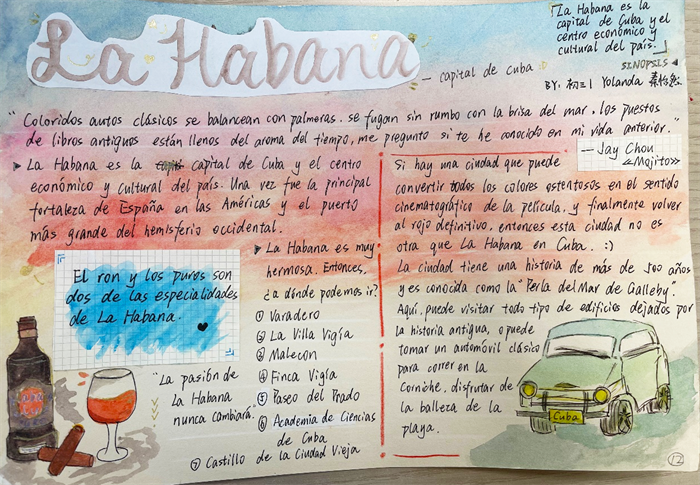 La Habana
— capital de Cuba
「La Habana es la
capital de Cuba y el
centro económico y
cultural del país.」
SINOPSIS
BY: 初三1 Yolanda
"Coloridos autos clásicos se balancean con palmeras. se fugan sin rumbo con la brisa del mar, los puestos
de libros antiguos están llenos del aroma del tiempo, me pregunto si te he conocido en mi vida anterior."
— Jay Chou
《Mojito》
La Habana es la capital de Cuba y el centro
económico y cultural del país. Una vez fue la principal
fortaleza de España en las Américas y el puerto
más grande del hemisferio occidental.
El ron y los puros son
dos de las especialidades
de La Habana.
"La pasión de
La Habana
nunca cambiará.
La Habana es muy
hermosa. Entonces,
¿a dónde podemos ir?
① Varadero
② La Villa Vigía
③ Malecon
④ Finca Vigía
⑤ Paseo del Prado
⑥ Academia de Ciencias
de Cuba
⑦ Castillo de la Ciudad Vieja
Si hay una ciudad que puede
convertir todos los colores ostentosos en el sentido
cinematográfico de la película, y finalmente volver
al rojo definitivo, entonces esta ciudad no es
otra que La Habana en Cuba. :)
La ciudad tiene una historia de más de 500 años
y es conocida como la "Perla del Mar de Galleby".
Aquí, puede visitar todo tipo de edificios dejados por
la historia antigua, o puede
tomar un automóvil clásico
para correr en la
Corniche, disfrutar de
la balleza de la
playa.
Cuba
12